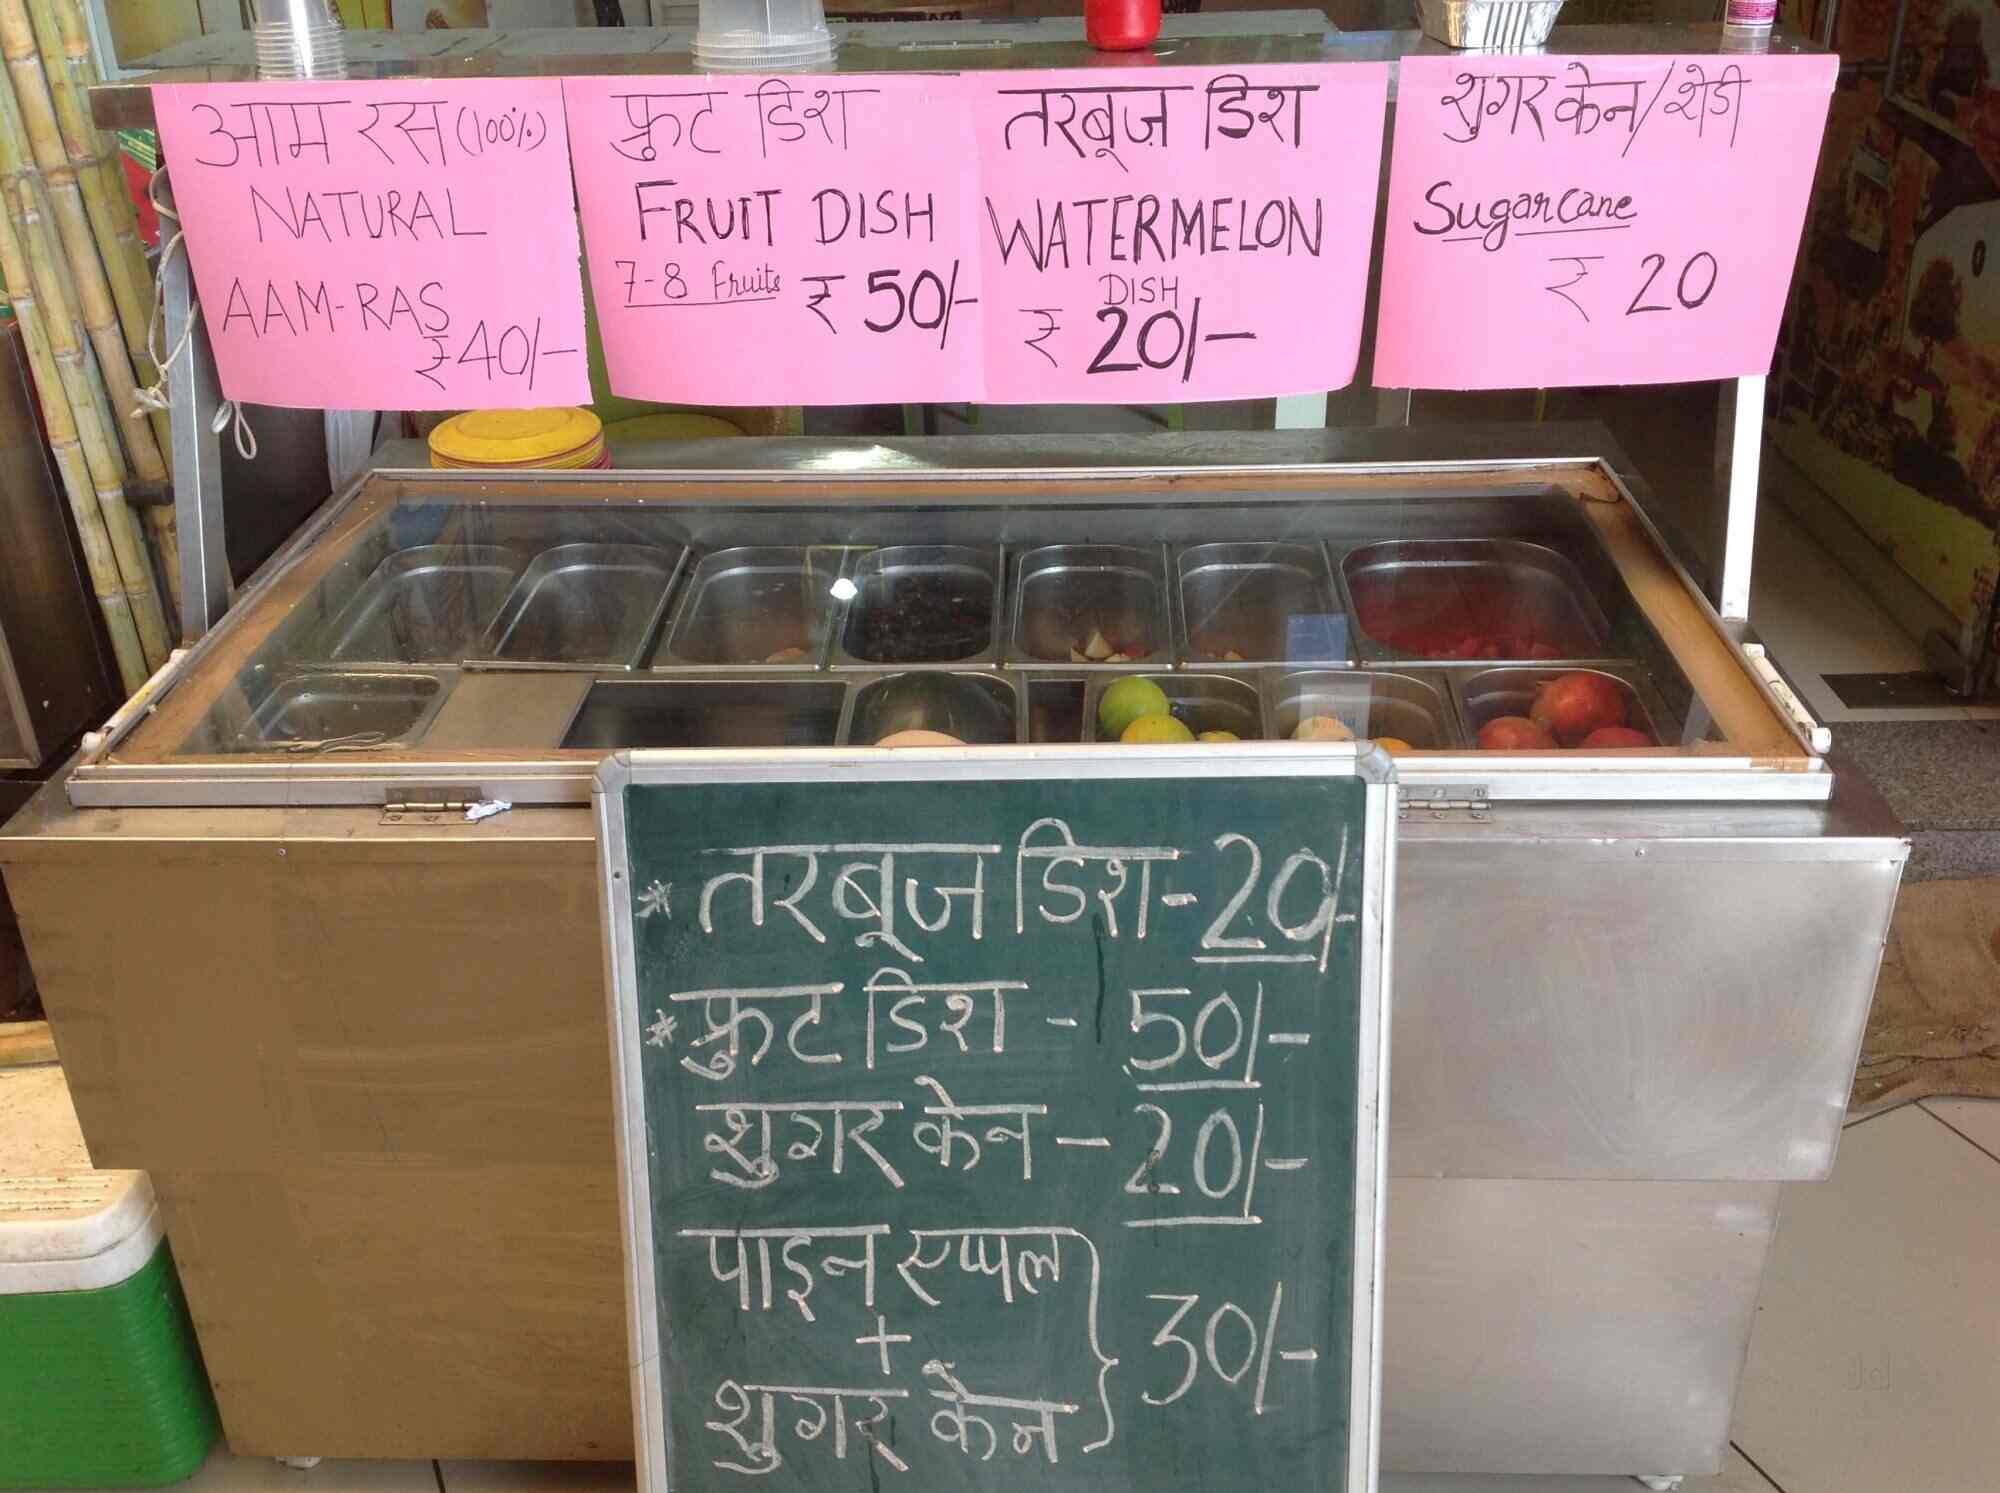 आम रस (100%)
NATURAL
AAM-RAS
₹40/-
फ्रुट डिश
FRUIT DISH
7-8 fruits ₹ 50/-
तरबूज़ डिश
WATERMELON
DISH
₹ 20/-
शुगर केन/शेडी
Sugarcane
₹ 20
* तरबूज डिश - 20/-
* फ्रुट डिश - 50/-
शुगर केन - 20/-
पाइन एप्पल
+
शुगर केन } 30/-
Jd